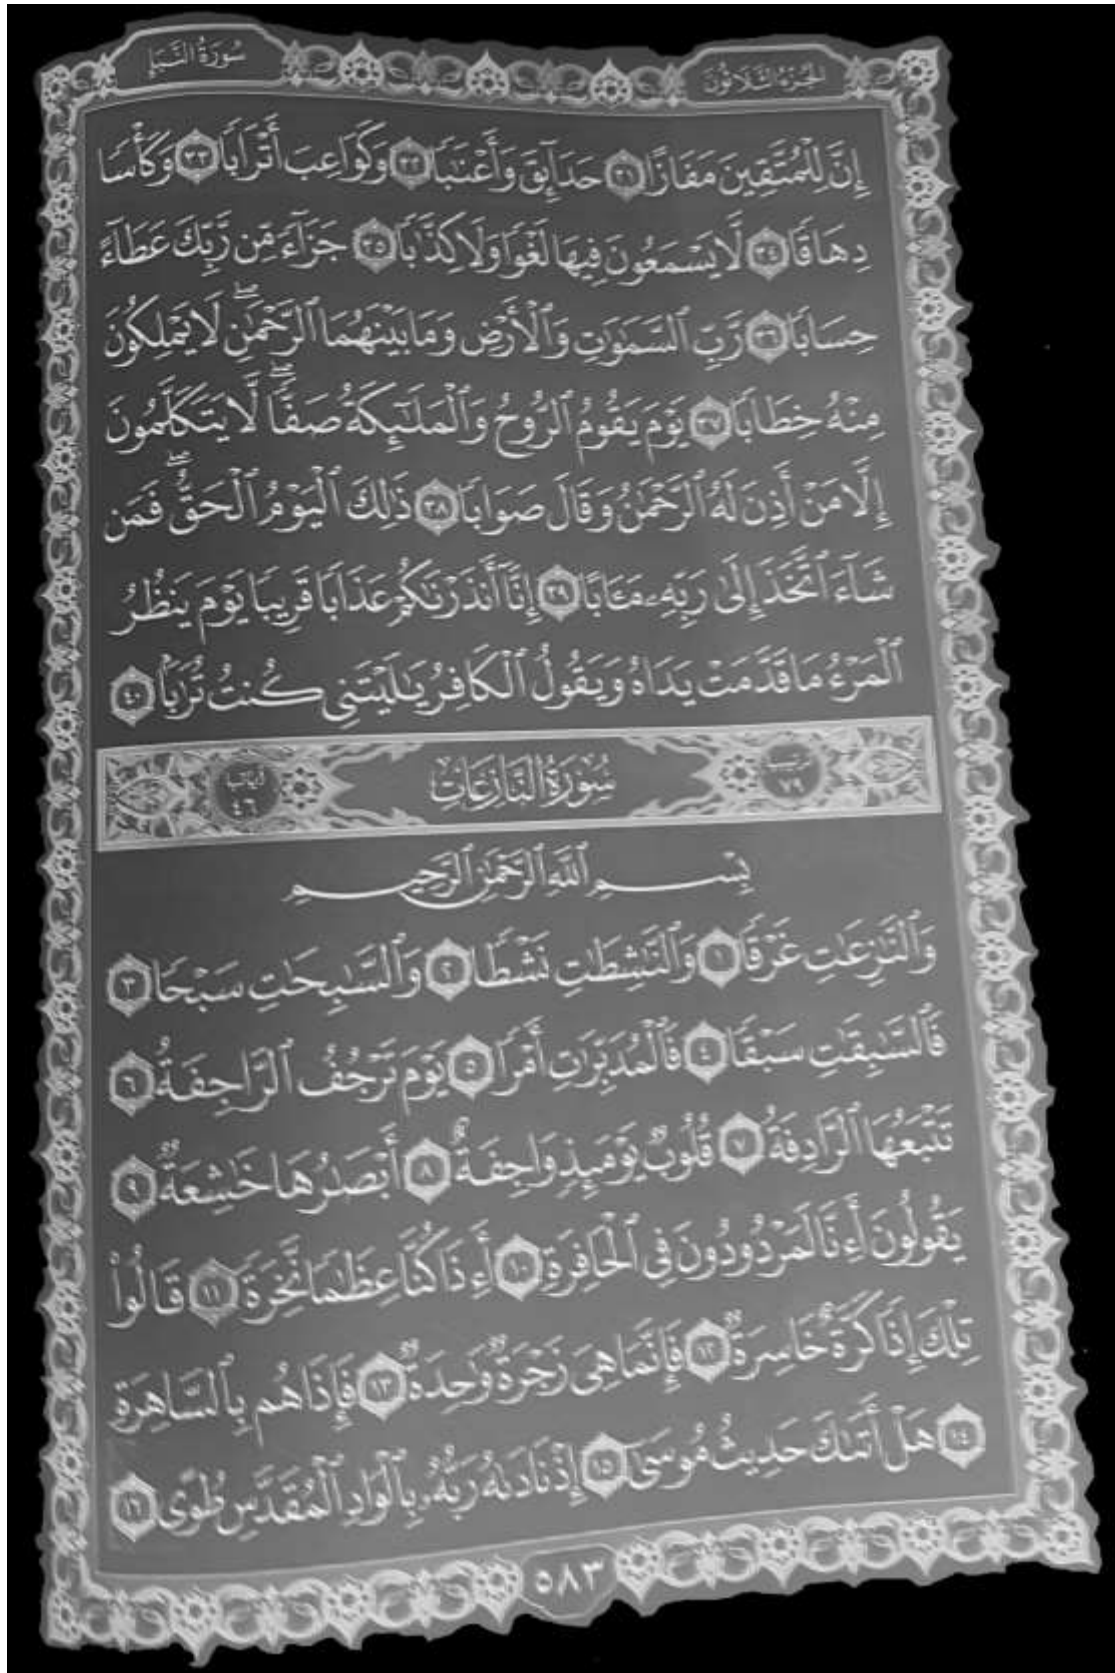 سُورَةُ النَّبَإِ
الجُزْءُ الثَّلَاثُونَ
إِنَّ لِلْمُتَّقِينَ مَفَازًا ٣١ حَدَآئِقَ وَأَعْنَٰبًا ٣٢ وَكَوَاعِبَ أَتْرَابًا ٣٣ وَكَأْسًا
دِهَاقًا ٣٤ لَّا يَسْمَعُونَ فِيهَا لَغْوًا وَلَا كِذَّٰبًا ٣٥ جَزَآءً مِّن رَّبِّكَ عَطَآءً
حِسَابًا ٣٦ رَّبِّ ٱلسَّمَٰوَٰتِ وَٱلْأَرْضِ وَمَا بَيْنَهُمَا ٱلرَّحْمَٰنِۖ لَا يَمْلِكُونَ
مِنْهُ خِطَابًا ٣٧ يَوْمَ يَقُومُ ٱلرُّوحُ وَٱلْمَلَٰٓئِكَةُ صَفًّاۖ لَّا يَتَكَلَّمُونَ
إِلَّا مَنْ أَذِنَ لَهُ ٱلرَّحْمَٰنُ وَقَالَ صَوَابًا ٣٨ ذَٰلِكَ ٱلْيَوْمُ ٱلْحَقُّۖ فَمَن
شَآءَ ٱتَّخَذَ إِلَىٰ رَبِّهِۦ مَـَٔابًا ٣٩ إِنَّآ أَنذَرْنَٰكُمْ عَذَابًا قَرِيبًا يَوْمَ يَنظُرُ
ٱلْمَرْءُ مَا قَدَّمَتْ يَدَاهُ وَيَقُولُ ٱلْكَافِرُ يَٰلَيْتَنِى كُنتُ تُرَٰبًۢا ٤٠
ترتيبها ٧٩ سُورَةُ النَّازِعَاتِ آياتها ٤٦
بِسْمِ ٱللَّهِ ٱلرَّحْمَٰنِ ٱلرَّحِيمِ
وَٱلنَّٰزِعَٰتِ غَرْقًا ١ وَٱلنَّٰشِطَٰتِ نَشْطًا ٢ وَٱلسَّٰبِحَٰتِ سَبْحًا ٣
فَٱلسَّٰبِقَٰتِ سَبْقًا ٤ فَٱلْمُدَبِّرَٰتِ أَمْرًا ٥ يَوْمَ تَرْجُفُ ٱلرَّاجِفَةُ ٦
تَتْبَعُهَا ٱلرَّادِفَةُ ٧ قُلُوبٌ يَوْمَئِذٍ وَاجِفَةٌ ٨ أَبْصَٰرُهَا خَٰشِعَةٌ ٩
يَقُولُونَ أَءِنَّا لَمَرْدُودُونَ فِى ٱلْحَافِرَةِ ١٠ أَءِذَا كُنَّا عِظَٰمًا نَّخِرَةً ١١ قَالُوا۟
تِلْكَ إِذًا كَرَّةٌ خَاسِرَةٌ ١٢ فَإِنَّمَا هِىَ زَجْرَةٌ وَٰحِدَةٌ ١٣ فَإِذَا هُم بِٱلسَّاهِرَةِ
١٤ هَلْ أَتَىٰكَ حَدِيثُ مُوسَىٰٓ ١٥ إِذْ نَادَىٰهُ رَبُّهُۥ بِٱلْوَادِ ٱلْمُقَدَّسِ طُوًى ١٦
٥٨٣